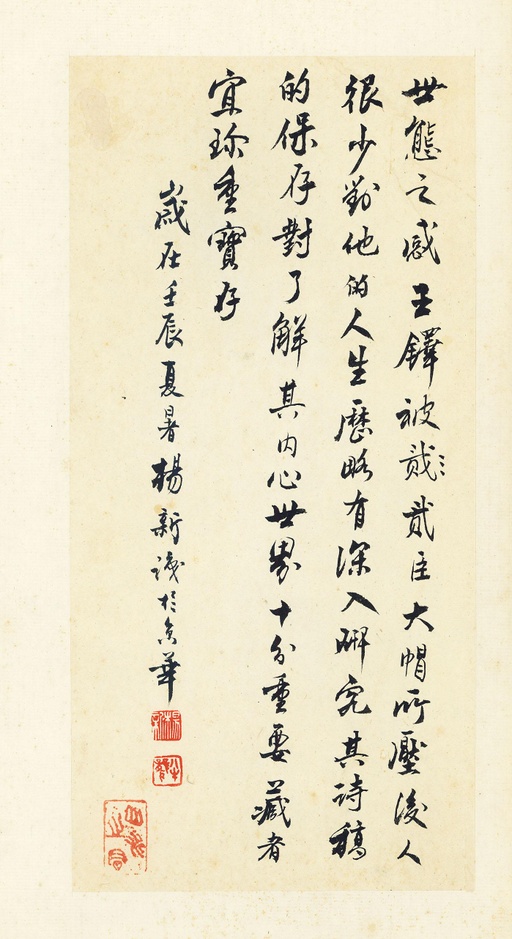 世態之感王鐸被貳貳臣大帽所壓後人
很少對他的人生歷略有深入研究其詩稿
的保存對了解其内心世界十分重要藏者
宜珍重寶存
歲在壬辰夏暑楊新識於京華